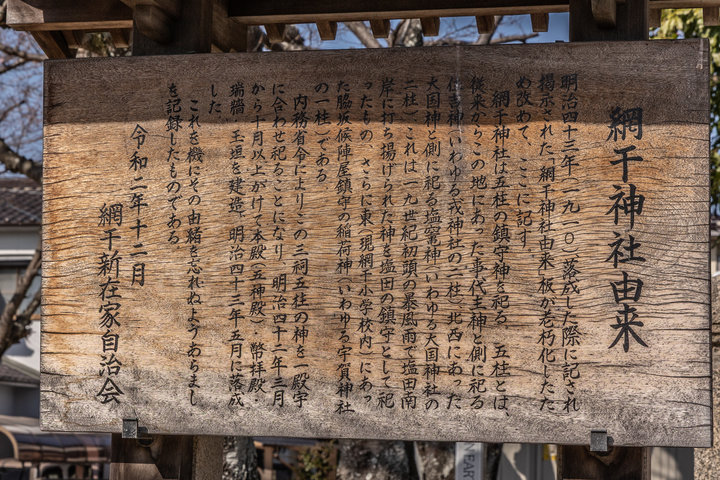 網干神社由来
明治四十三年(一九一〇)落成した際に記され
掲示された「網干神社由来」板が老朽化したた
め改めて、ここに記す。
網干神社は五柱の鎮守神を祀る 五柱とは、
従来からこの地にあった事代主神と側に祀る
住吉神(いわゆる戎神社の二柱)北西にあった
大国神と側に祀る塩竃神(いわゆる大国神社の
二柱)これは一九世紀初頭の暴風雨で塩田南
岸に打ち揚げられた神を塩田の鎮守として祀
ったもの、さらに東(現網干小学校内)にあっ
た脇坂候陣屋鎮守の稲荷神(いわゆる宇賀神社
の一柱)である
内務省令によりこの三祠五柱の神を一殿宇
に合わせ祀ることになり(明治四十二年三月
から十月以上かけて本殿(五神殿)・幣拝殿・
瑞牆・玉垣を建造、明治四十三年五月に落成
した
これを機にその由緒を忘れぬようあらまし
を記録したものである
令和二年十二月
網干新在家自治会
NEAR